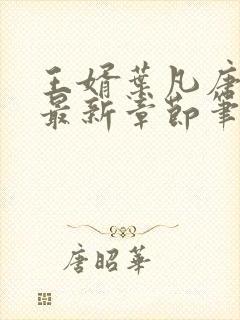 王婿葉凡唐
最新章節筆
唐昭華